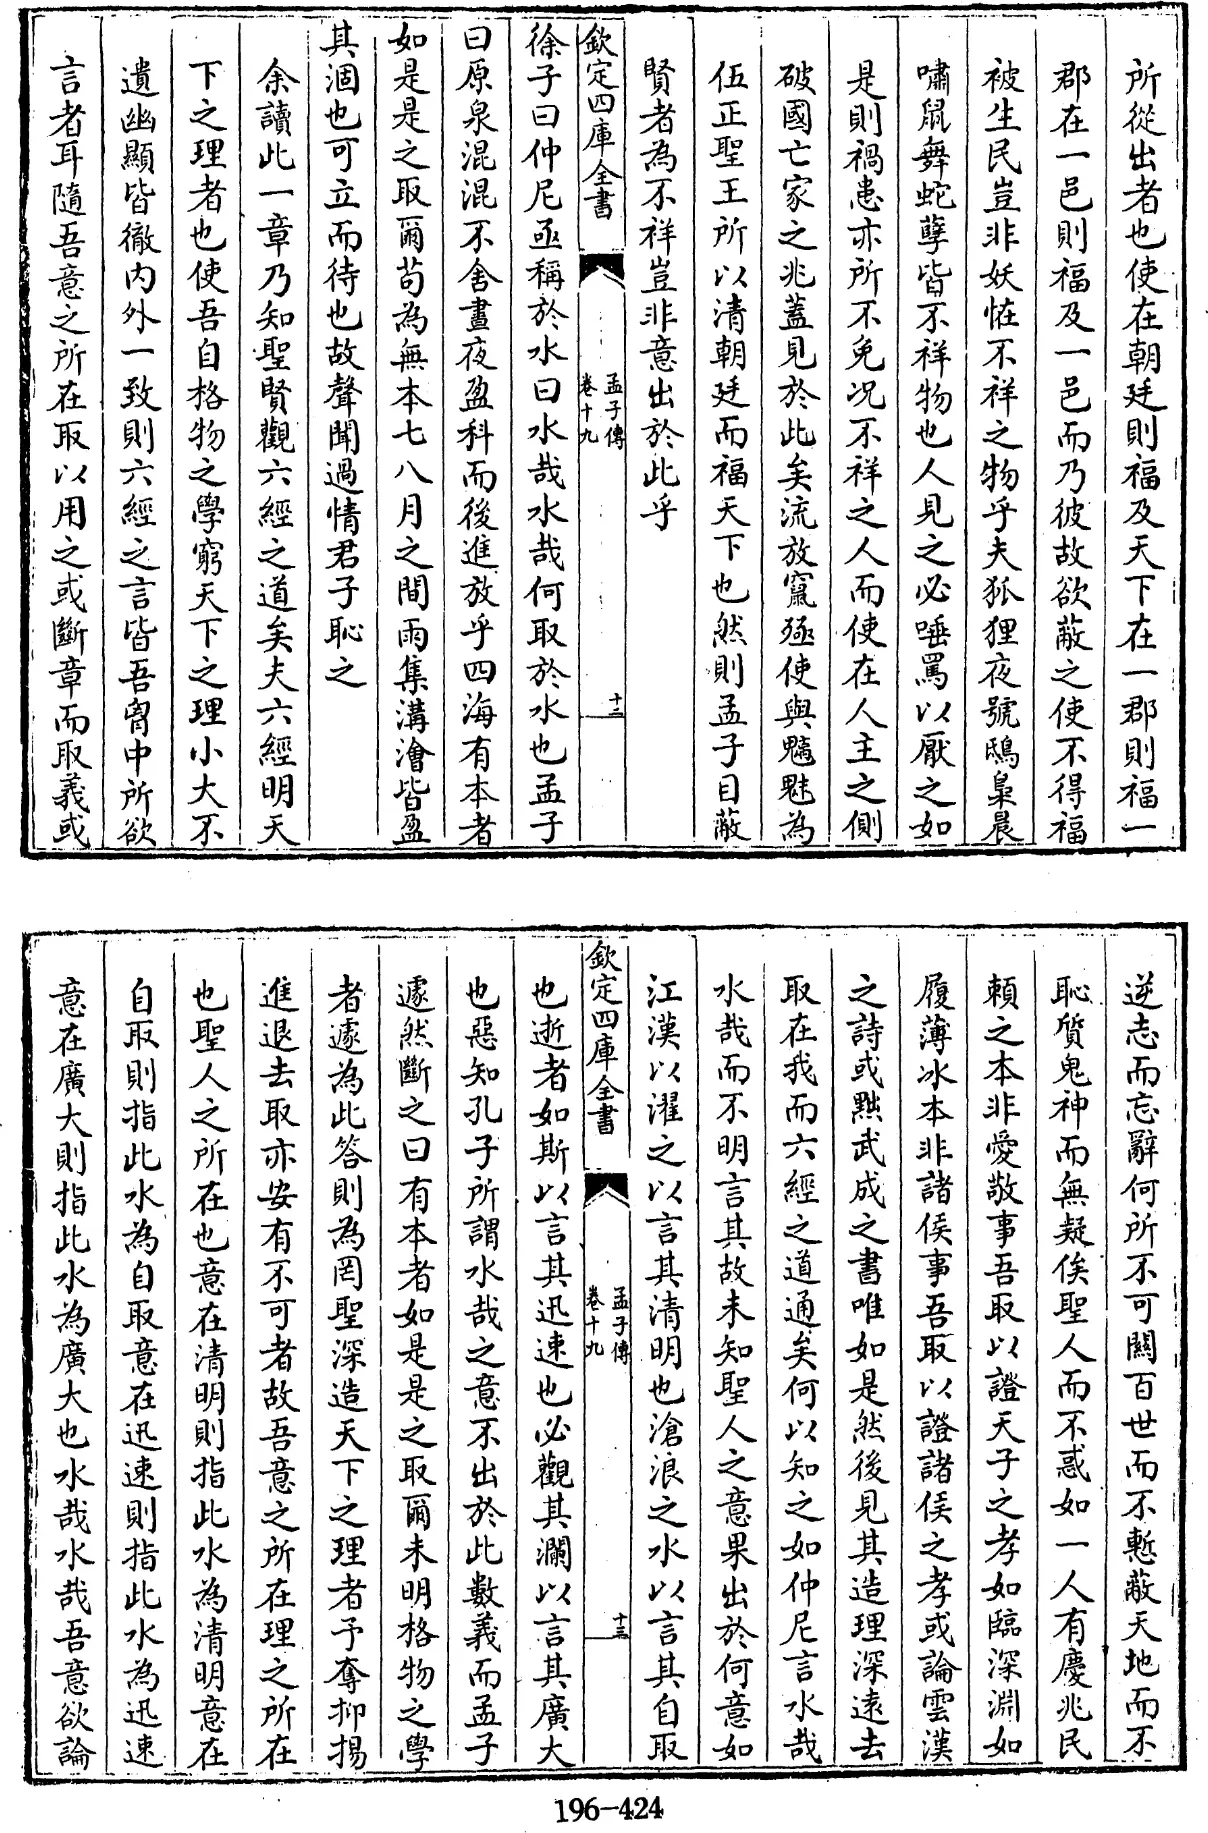 所從出者也使在朝廷則福及天下在一郡則福一
郡在一邑則福及一邑而乃彼故欲蔽之使不得福
被生民豈非妖怪不祥之物乎夫狐狸夜號鴟梟晨
嘯鼠舞蛇孽皆不祥物也人見之必唾罵以厭之如
是則禍患亦所不免况不祥之人而使在人主之側
破國亡家之兆蓋見於此矣流放竄殛使與魑魅為
伍正聖王所以清朝廷而福天下也然則孟子目蔽
賢者為不祥豈非意出於此乎
欽定四庫全書
孟子傳
卷十九
十二
徐子曰仲尼亟稱於水曰水哉水哉何取於水也孟子
曰原泉混混不舍晝夜盈科而後進放乎四海有本者
如是是之取爾苟為無本七八月之間雨集溝澮皆盈
其涸也可立而待也故聲聞過情君子恥之
余讀此一章乃知聖賢觀六經之道矣夫六經明天
下之理者也使吾自格物之學窮天下之理小大不
遺幽顯皆徹內外一致則六經之言皆吾胷中所欲
言者耳隨吾意之所在取以用之或斷章而取義或
逆志而忘辭何所不可關百世而不慙蔽天地而不
恥質鬼神而無疑俟聖人而不惑如一人有慶兆民
賴之本非愛敬事吾取以證天子之孝如臨深淵如
履薄冰本非諸侯事吾取以證諸侯之孝或論雲漢
之詩或黜武成之書唯如是然後見其造理深遠去
取在我而六經之道通矣何以知之如仲尼言水哉
水哉而不明言其故未知聖人之意果出於何意如
江漢以濯之以言其清明也滄浪之水以言其自取
欽定四庫全書
孟子傳
卷十九
十三
也逝者如斯以言其迅速也必觀其瀾以言其廣大
也惡知孔子所謂水哉之意不出於此數義而孟子
遽然斷之曰有本者如是是之取爾未明格物之學
者遽為此答則為罔聖深造天下之理者予奪抑揚
進退去取亦安有不可者故吾意之所在理之所在
也聖人之所在也意在清明則指此水為清明意在
自取則指此水為自取意在迅速則指此水為迅速
意在廣大則指此水為廣大也水哉水哉吾意欲論
196-424